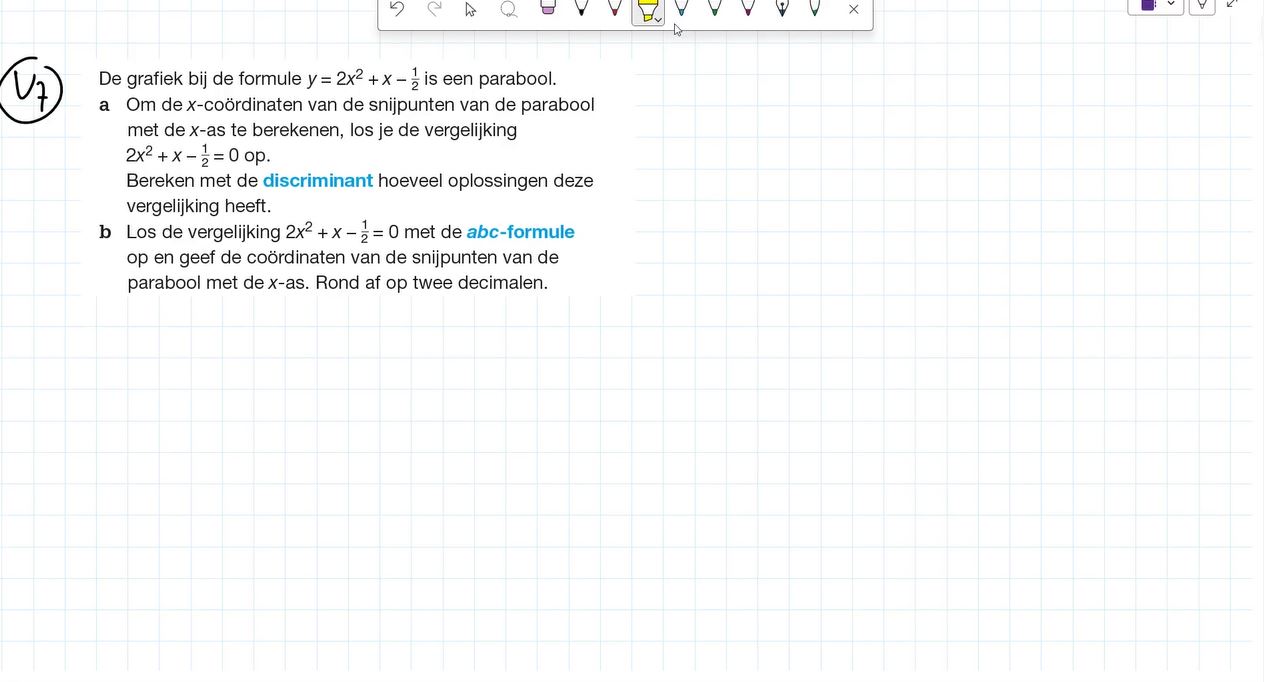 V7
De grafiek bij de formule y = 2x² + x − ½ is een parabool.
a Om de x-coördinaten van de snijpunten van de parabool
met de x-as te berekenen, los je de vergelijking
2x² + x − ½ = 0 op.
Bereken met de discriminant hoeveel oplossingen deze
vergelijking heeft.
b Los de vergelijking 2x² + x − ½ = 0 met de abc-formule
op en geef de coördinaten van de snijpunten van de
parabool met de x-as. Rond af op twee decimalen.